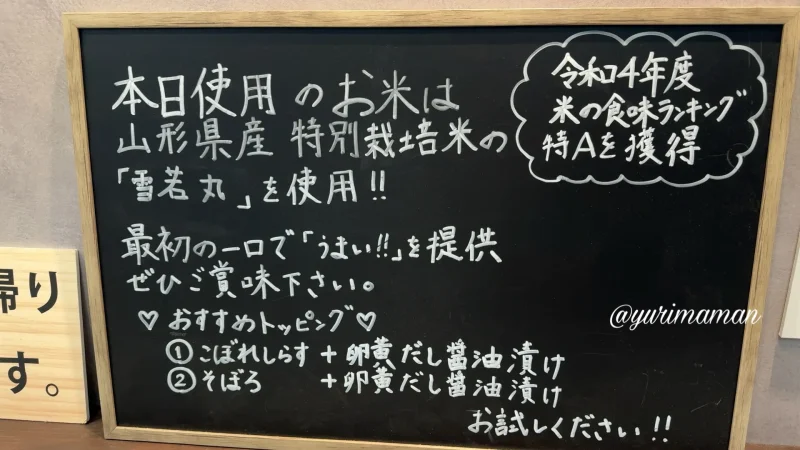 本日使用のお米は
山形県産 特別栽培米の
「雪若丸」を使用!!
令和4年度
米の食味ランキング
特Aを獲得
最初の一口で「うまい!!」を提供
ぜひご賞味下さい。
♡おすすめトッピング♡
①こぼれしらす+卵黄だし醤油漬け
②そぼろ +卵黄だし醤油漬け
お試しください!!
@yurimaman
帰り
す。